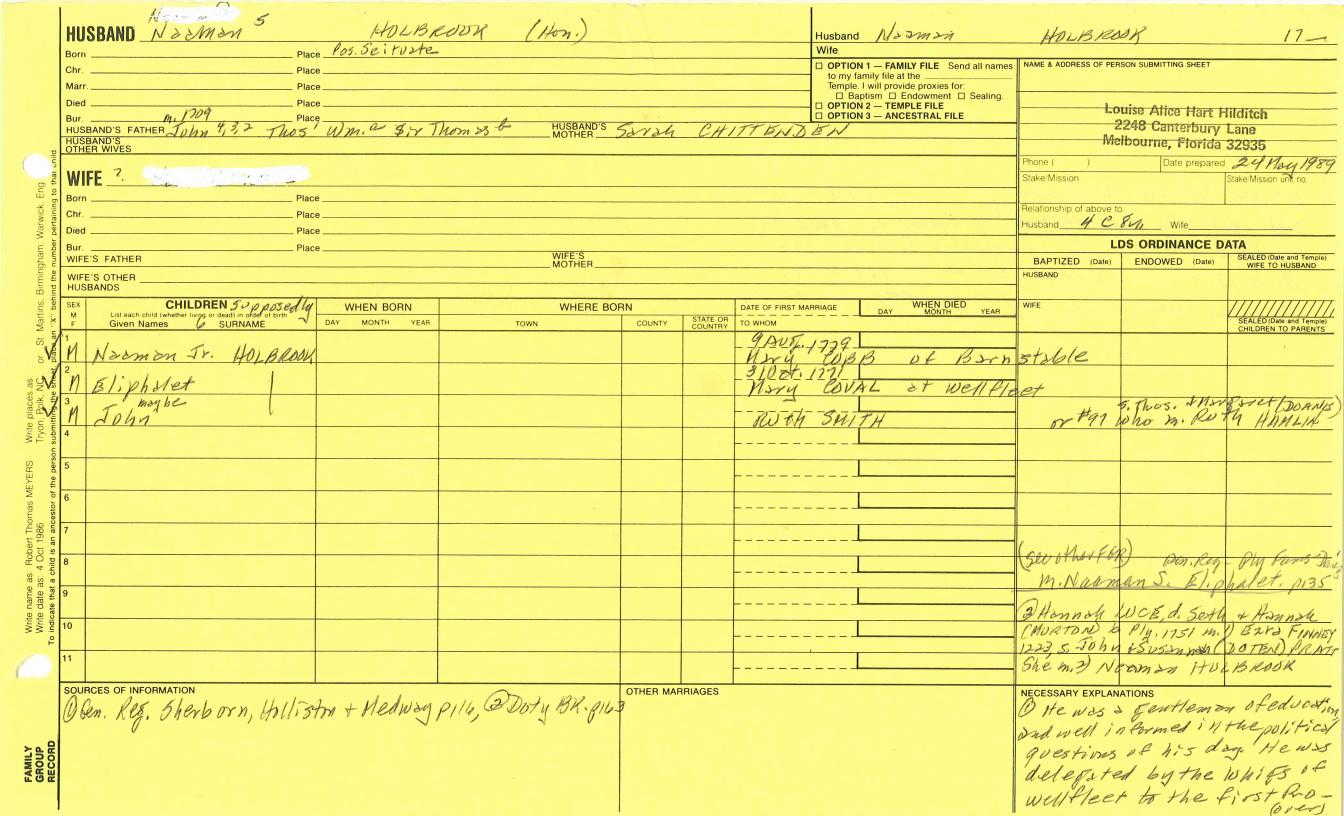 HUSBAND Naaman 5 HOLBROOK (Hon.)
Born Place Pos. Scituate
Chr. Place
Marr. Place
Died Place
Bur. m. 1709 Place
HUSBAND'S FATHER John 4,3,2 Thos' Wm.a Sir Thomas b HUSBAND'S MOTHER Sarah CHITTENDEN
HUSBAND'S OTHER WIVES
WIFE ?.
Born Place
Chr. Place
Died Place
Bur. Place
WIFE'S FATHER WIFE'S MOTHER
WIFE'S OTHER HUSBANDS
Husband Naaman HOLBROOK 17—
Wife
☐ OPTION 1 — FAMILY FILE Send all names
to my family file at the
Temple. I will provide proxies for:
☐ Baptism ☐ Endowment ☐ Sealing.
☐ OPTION 2 — TEMPLE FILE
☐ OPTION 3 — ANCESTRAL FILE
NAME & ADDRESS OF PERSON SUBMITTING SHEET
Louise Alice Hart Hilditch
2248 Canterbury Lane
Melbourne, Florida 32935
Phone ( ) Date prepared 24 May 1989
Stake/Mission Stake/Mission unit no.
Relationship of above to
Husband 4 C 8r. Wife
LDS ORDINANCE DATA
BAPTIZED (Date) ENDOWED (Date) SEALED (Date and Temple) WIFE TO HUSBAND
HUSBAND
WIFE
SEALED (Date and Temple) CHILDREN TO PARENTS
SEX M F
CHILDREN Supposedly
List each child (whether living or dead) in order of birth
Given Names 6 SURNAME
WHEN BORN
DAY MONTH YEAR
WHERE BORN
TOWN COUNTY STATE OR COUNTRY
DATE OF FIRST MARRIAGE
TO WHOM
WHEN DIED
DAY MONTH YEAR
1 9 Aug. 1729
M Naaman Jr. HOLBROOK Mary COBB of Barnstable
2 31 Oct. 1721
M Eliphalet Mary COVAL at Wellfleet
3 maybe s. Thos. & Margaret (DOANE)
M John RUTH SMITH or #97 who m. Ruth HAMLIN
4
5
6
7
8
9
10
11
(See other FGR) Gen. Reg - Ply Fams
M. Naaman S. Eliphalet. p135
② Hannah LUCE, d. Seth & Hannah
(MORTON) b Ply. 1751 m. 1) Ezra FINNEY
1223, s. John & Susannah (DOTEN) PRATT
She m. 2) Naaman HOLBROOK
SOURCES OF INFORMATION
① Gen. Reg. Sherborn, Holliston & Medway p116, ② Doty BK. p163
OTHER MARRIAGES
NECESSARY EXPLANATIONS
① He was a gentleman of education
and well informed in the political
questions of his day. He was
delegated by the Whigs of
Wellfleet to the first Pro-
(over)
FAMILY GROUP RECORD
Write name as: Robert Thomas MEYERS Write places as: Tryon, Polk, NC or St. Martins, Birmingham, Warwick, Eng
Write date as: 4 Oct 1986
To indicate that a child is an ancestor of the person submitting the sheet, place an "X" behind the number pertaining to that child.